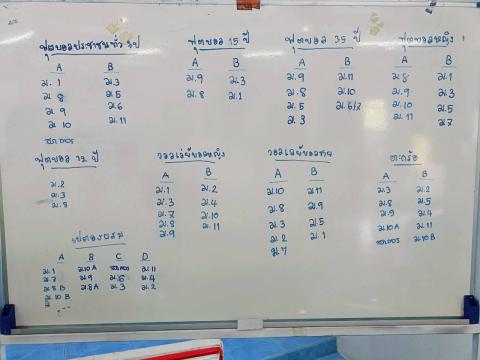 ฟุตบอลประชาชนทั่วไป
A B
ม.1 ม.3
ม.8 ม.5
ม.9 ม.6
ม.10 ม.11
ฟุตบอล 15 ปี
A B
ม.9 ม.3
ม.8 ม.1
ฟุตบอล 35 ปี
A B
ม.9 ม.11
ม.8 ม.10
ม.5 ม.6/2
ม.3
ฟุตบอลหญิง
A B
ม.8 ม.1
ม.9 ม.3
ม.10 ม.5
ม.11 ม.7
ฟุตบอล 12 ปี
ม.2
ม.3
ม.8
วอลเลย์บอลหญิง
A B
ม.1 ม.2
ม.3 ม.4
ม.7 ม.10
ม.8 ม.11
ม.9
วอลเลย์บอลชาย
A B
ม.10 ม.11
ม.8 ม.9
ม.3 ม.5
ม.2 ม.1
ม.7
ตะกร้อ
A B
ม.3 ม.2
ม.8 ม.5
ม.9 ม.4
ม.10A ม.11
ม.10B
เปตองผสม
A B C D
ม.1 ม.10A ม.11
ม.7 ม.9 ม.6 ม.4
ม.8B ม.8A ม.3 ม.2
ม.10B